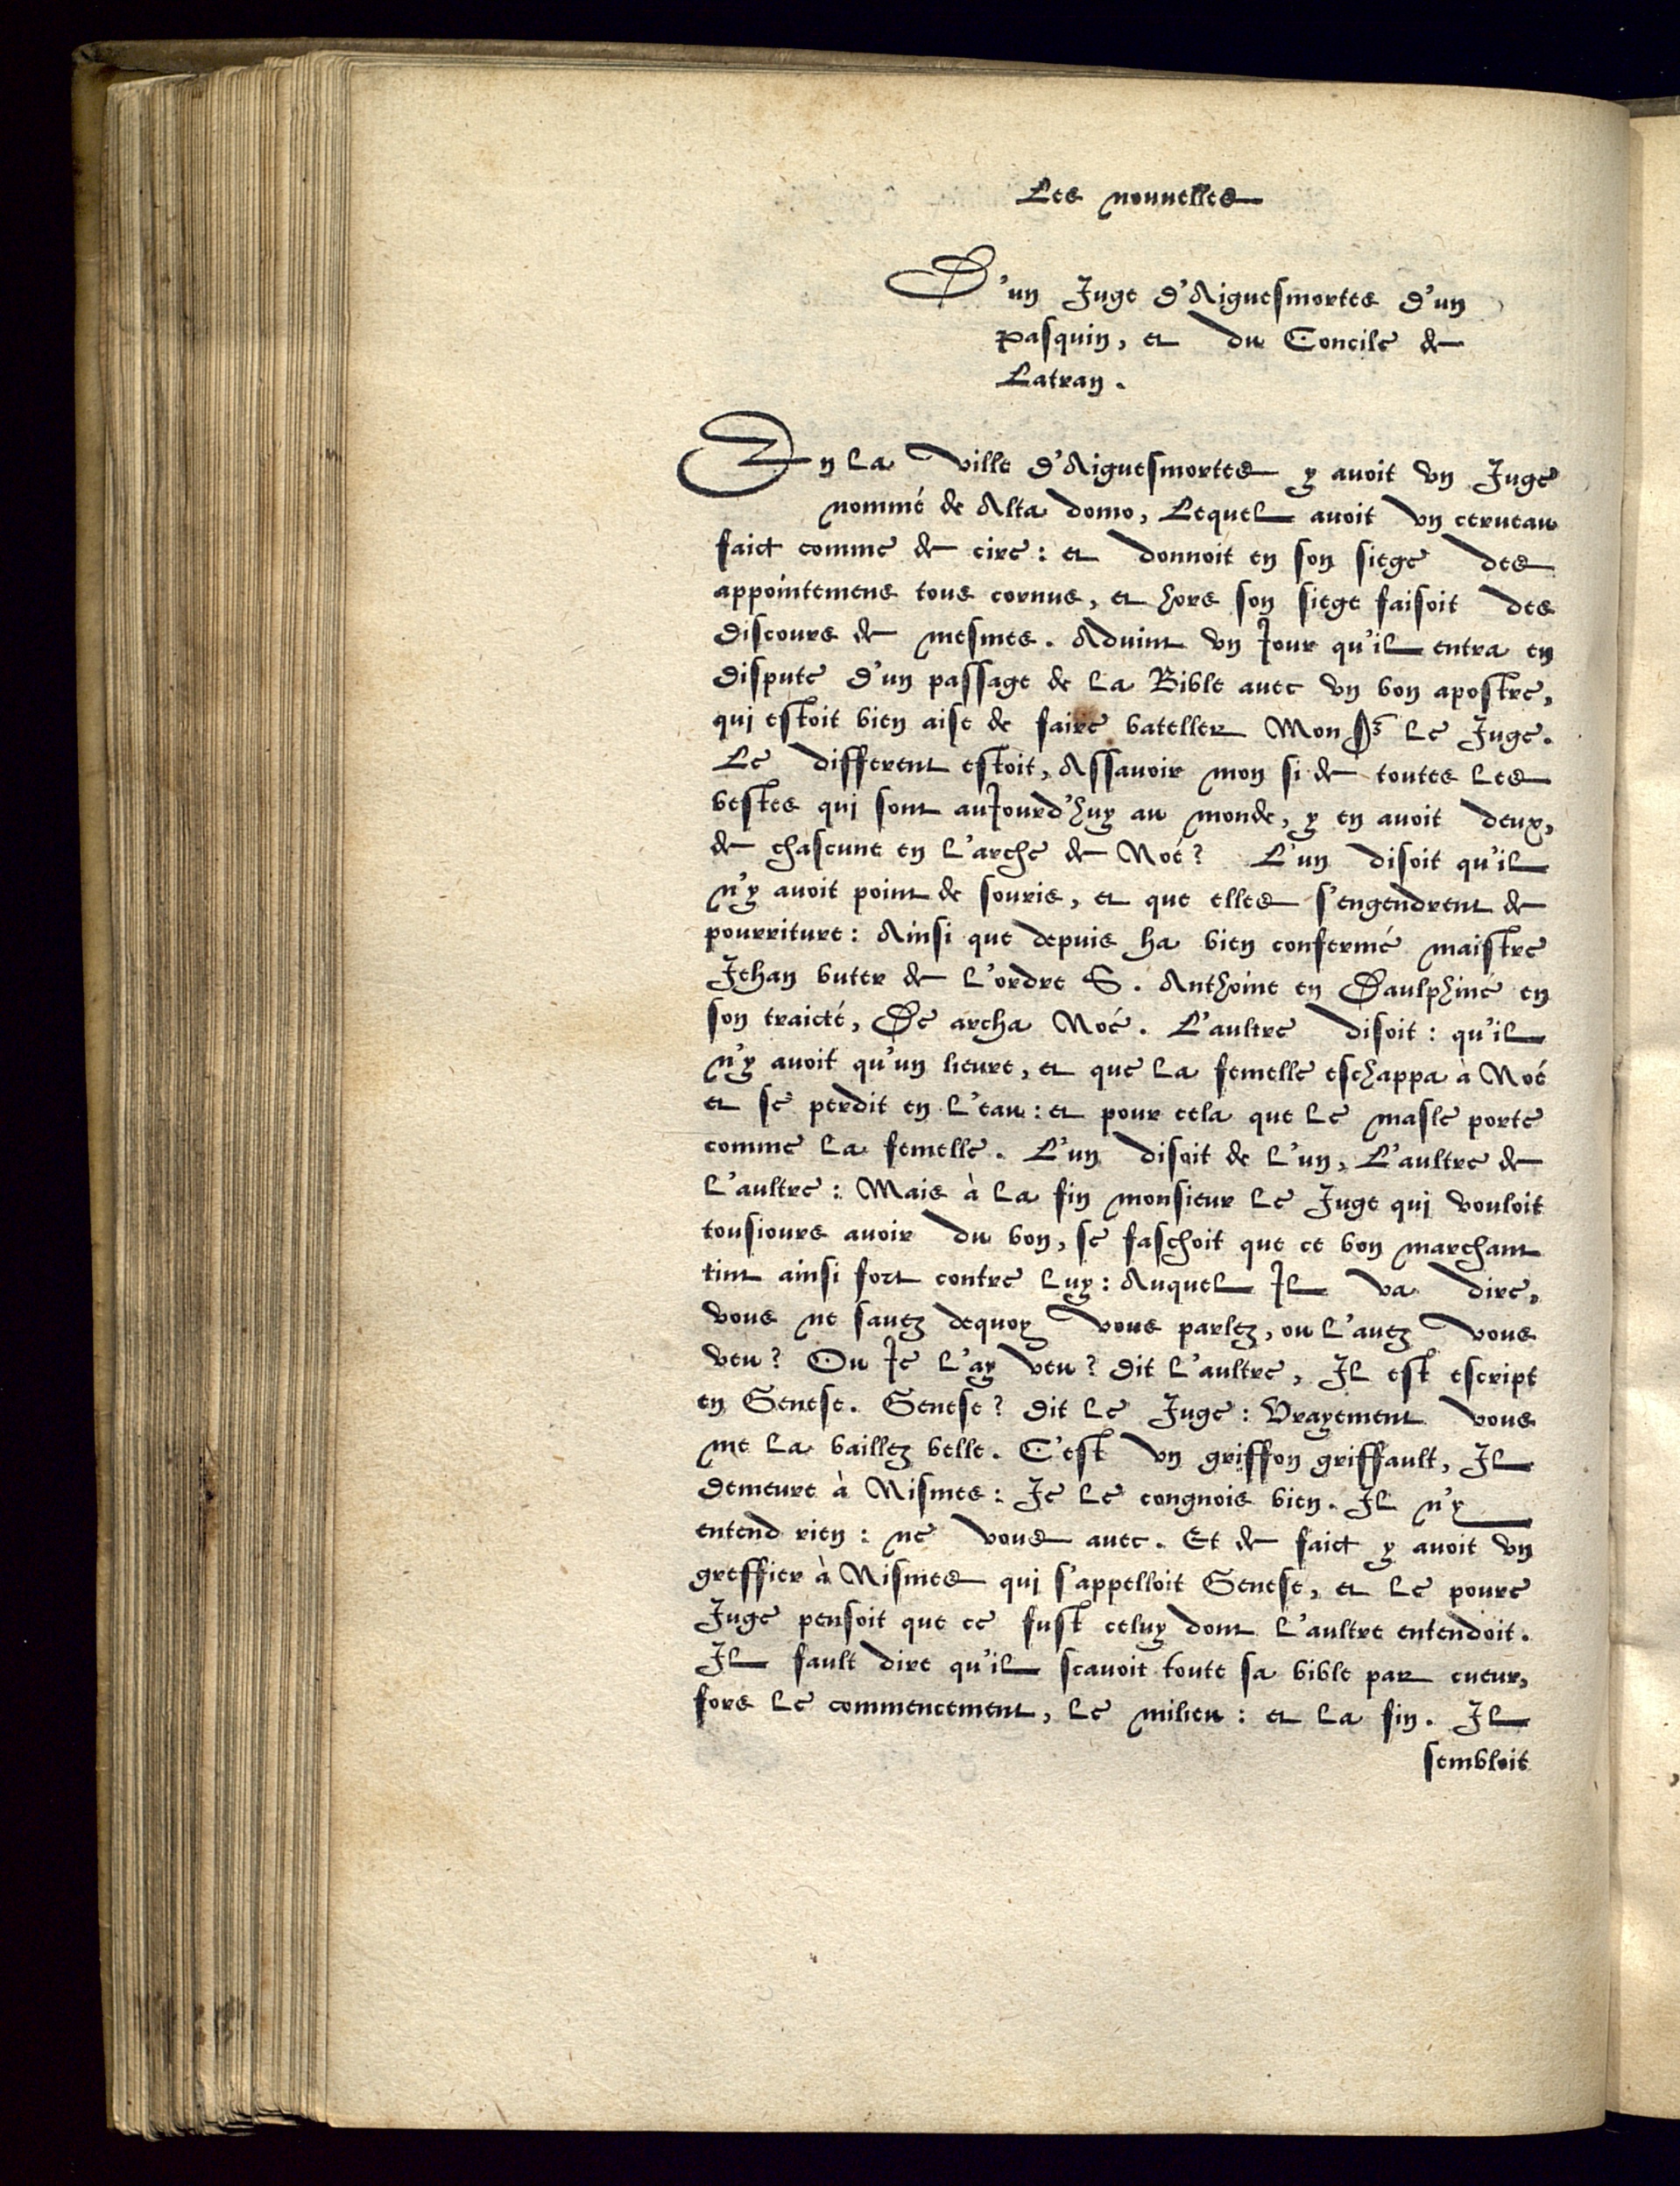 Les nouuelles
D'un Juge d'Aiguesmortes d'un
pasquin, et du Concile de
Latran.
En la ville d'Aiguesmortes y auoit vn Juge
nommé de Alta domo, Lequel auoit vn cerueau
faict comme de cire: et donnoit en son siege des
appointemens tous cornus, et hors son siege faisoit des
discours de mesmes. Aduint vn Jour qu'il entra en
dispute d'un passage de la Bible auec vn bon apostre,
qui estoit bien aise de faire bateller Mon Sr le Juge.
Le different estoit, Assauoir mon si de toutes les
bestes qui sont auJourd'huy au monde, y en auoit deux,
de chascune en l'arche de Noé? L'un disoit qu'il
n'y auoit point de souris, et que elles s'engendrent de
pourriture: Ainsi que depuis ha bien confermé maistre
Jehan buter de l'ordre S. Anthoine en Daulphiné en
son traicté, De archa Noé. L'aultre disoit: qu'il
n'y auoit qu'un lieure, et que la femelle eschappa à Noé
et se perdit en l'eau: et pour cela que le masle porte
comme la femelle. L'un disoit de l'un, L'aultre de
l'aultre: Mais à la fin monsieur le Juge qui vouloit
tousiours auoir du bon, se faschoit que ce bon marchant
tint ainsi fort contre luy: Auquel Il va dire,
vous ne sauez dequoy vous parlez, ou l'auez vous
veu? Ou Je l'ay veu? dit l'aultre, Il est escript
en Genese. Genese? dit le Juge: Vrayement vous
me la baillez belle. C'est vn griffon griffault, Il
demeure à Nismes: Je le congnois bien. Il n'y
entend rien: ne vous auec. Et de faict y auoit vn
greffier à Nismes qui s'appelloit Genese, et le poure
Juge pensoit que ce fust celuy dont l'aultre entendoit.
Il fault dire qu'il scauoit toute sa bible par cueur,
fors le commencement, le milieu: et la fin. Il
sembloit